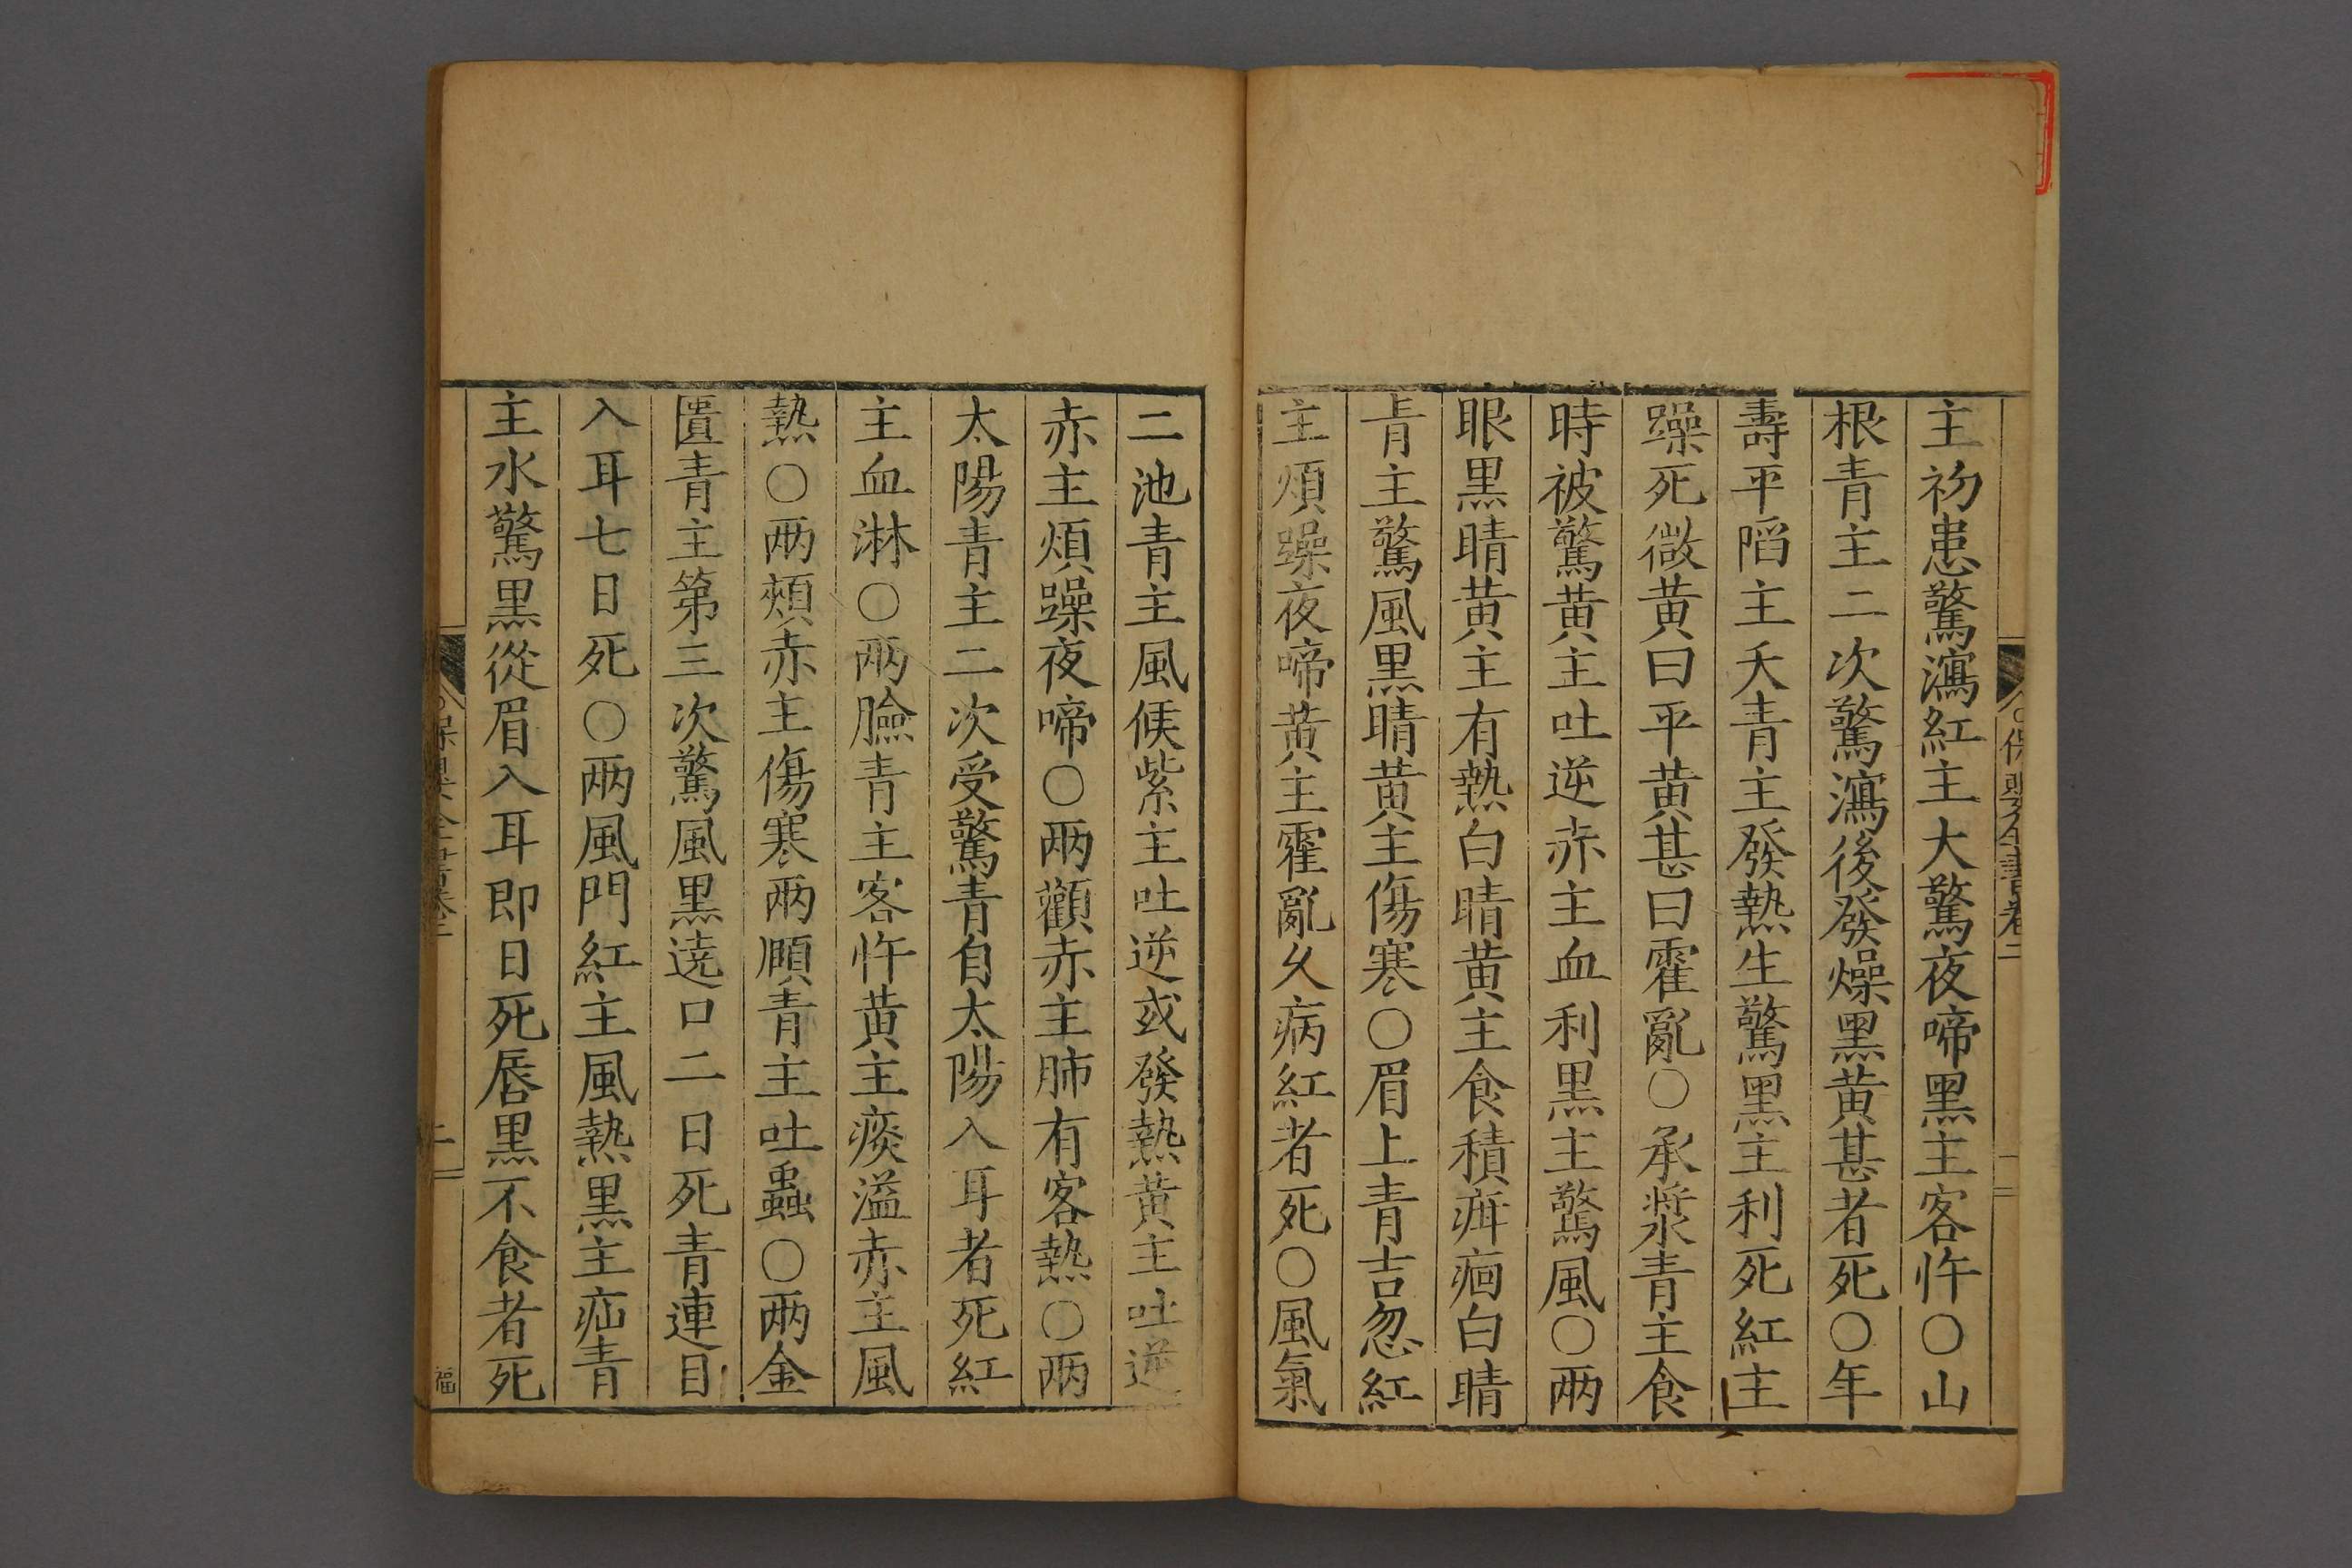 主初患驚瀉紅主大驚夜啼黑主客忤○山
根青主二次驚瀉後發燥黑黃甚者死○年
壽平陷主夭青主發熱生驚黑主利死紅主
躁死微黃曰平黃甚曰霍亂○承漿青主食
時被驚黃主吐逆赤主血利黑主驚風○兩
眼黑睛黃主有熱白睛黃主食積疳痼白睛
青主驚風黑睛黃主傷寒○眉上青吉忽紅
主煩躁夜啼黃主霍亂久病紅者死○風氣
二池青主風候紫主吐逆或發熱黃主吐逆
赤主煩躁夜啼○兩顴赤主肺有客熱○兩
太陽青主二次受驚青自太陽入耳者死紅
主血淋○兩臉青主客忤黃主痰溢赤主風
熱○兩頰赤主傷寒兩頤青主吐蟲○兩金
匱青主第三次驚風黑遶口二日死青連目
入耳七日死○兩風門紅主風熱黑主疝青
主水驚黑從眉入耳即日死唇黑不食者死
保嬰全書卷二
二
福